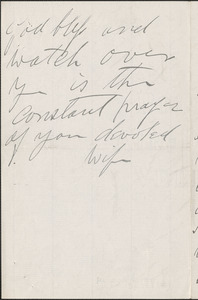 God bless and
watch over
you is the
constant prayer
of your devoted
Wife